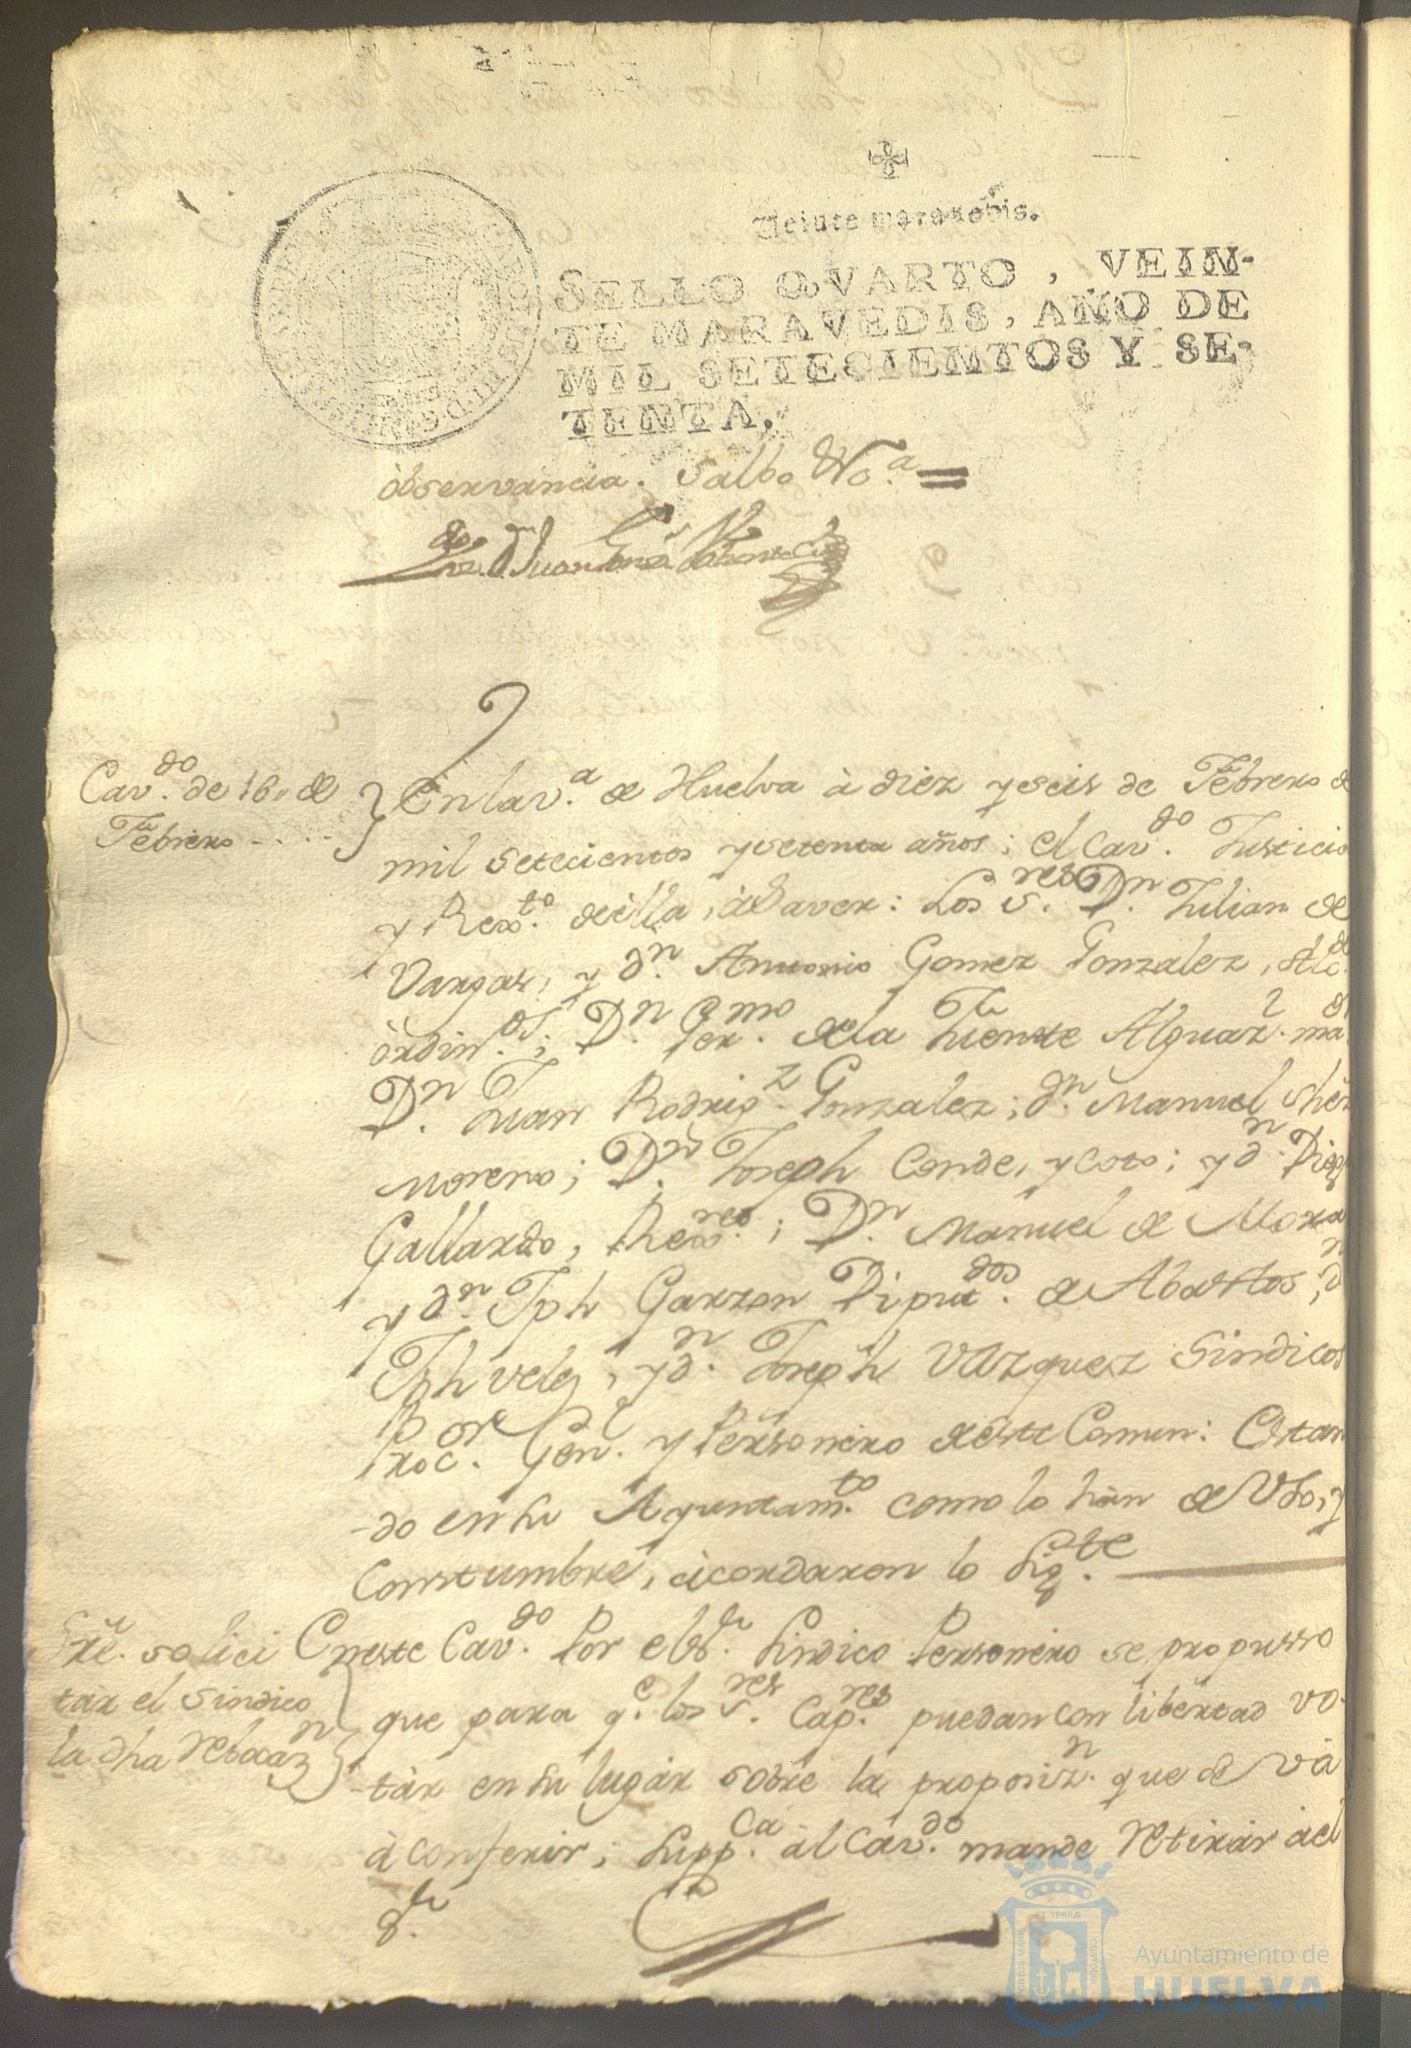 Veinte maravedis.
SELLO QVARTO, VEIN-
TE MARAVEDIS, AÑO DE
MIL SETECIENTOS Y SE-
TENTA.
observancia. Salbo
Cav.do de 16,, de
Febrero - . . . .
En la v.a de Huelva à diez y seis de Febrero de
mil setecientos y setenta años; el Cav.do Justicia
y Rex.to de illa, à Saver: Los S.res D.n Julian de
Vargas, y d.n Antonio Gomez Gonzalez, Alc.des
òrdin.os; D.n Ger.mo de la Fuente Alguaz.l ma.or
D.n Juan Rodrig.z Gonzalez; d.n Manuel Shez
Moreno; D.n Joseph Conde, y Coto; y d.n Diego
Gallardo, Rex.res; D.n Manuel de Mora
y d.n Jph Garzon Diput.dos de Abastos; d.n
Jph Velez, y d.n Joseph Vazquez Sindicos
Proc.or Gen.l y Personero de este Comun: Estan
-do en su Ayuntam.to como lo hàn de Uso, y
Constumbre, àcordaron lo Sig.te
Sre. solici
tàr el Sindico
la dha
En este Cav.do Por el S.r Sindico Personero se propusso
que para q.e los S.res Cap.res puedan con libertad vo-
tàr en su lugàr sobre la proposiz.n que se và
à conferir; Supp.ca àl Cav.do mande retiràr àel
S.r
ET TERRÆ
PORTUS MARIS
CUSTODIA
Ayuntamiento de
HUELVA